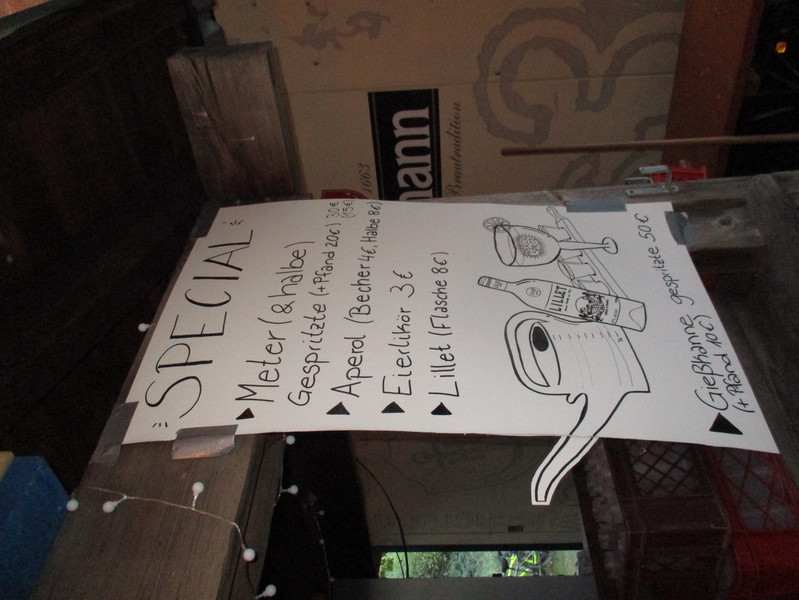 SPECIAL
Meter (& halbe)
Gespritzte (+ Pfand 20€) 30€
(15€)
Aperol (Becher 4€, Halbe 8€)
Eierlikör 3€
Lillet (Flasche 8€)
LILLET
Gießkanne gespritzte 50€
(+ Pfand 10€)
mann
1663
Brautradition